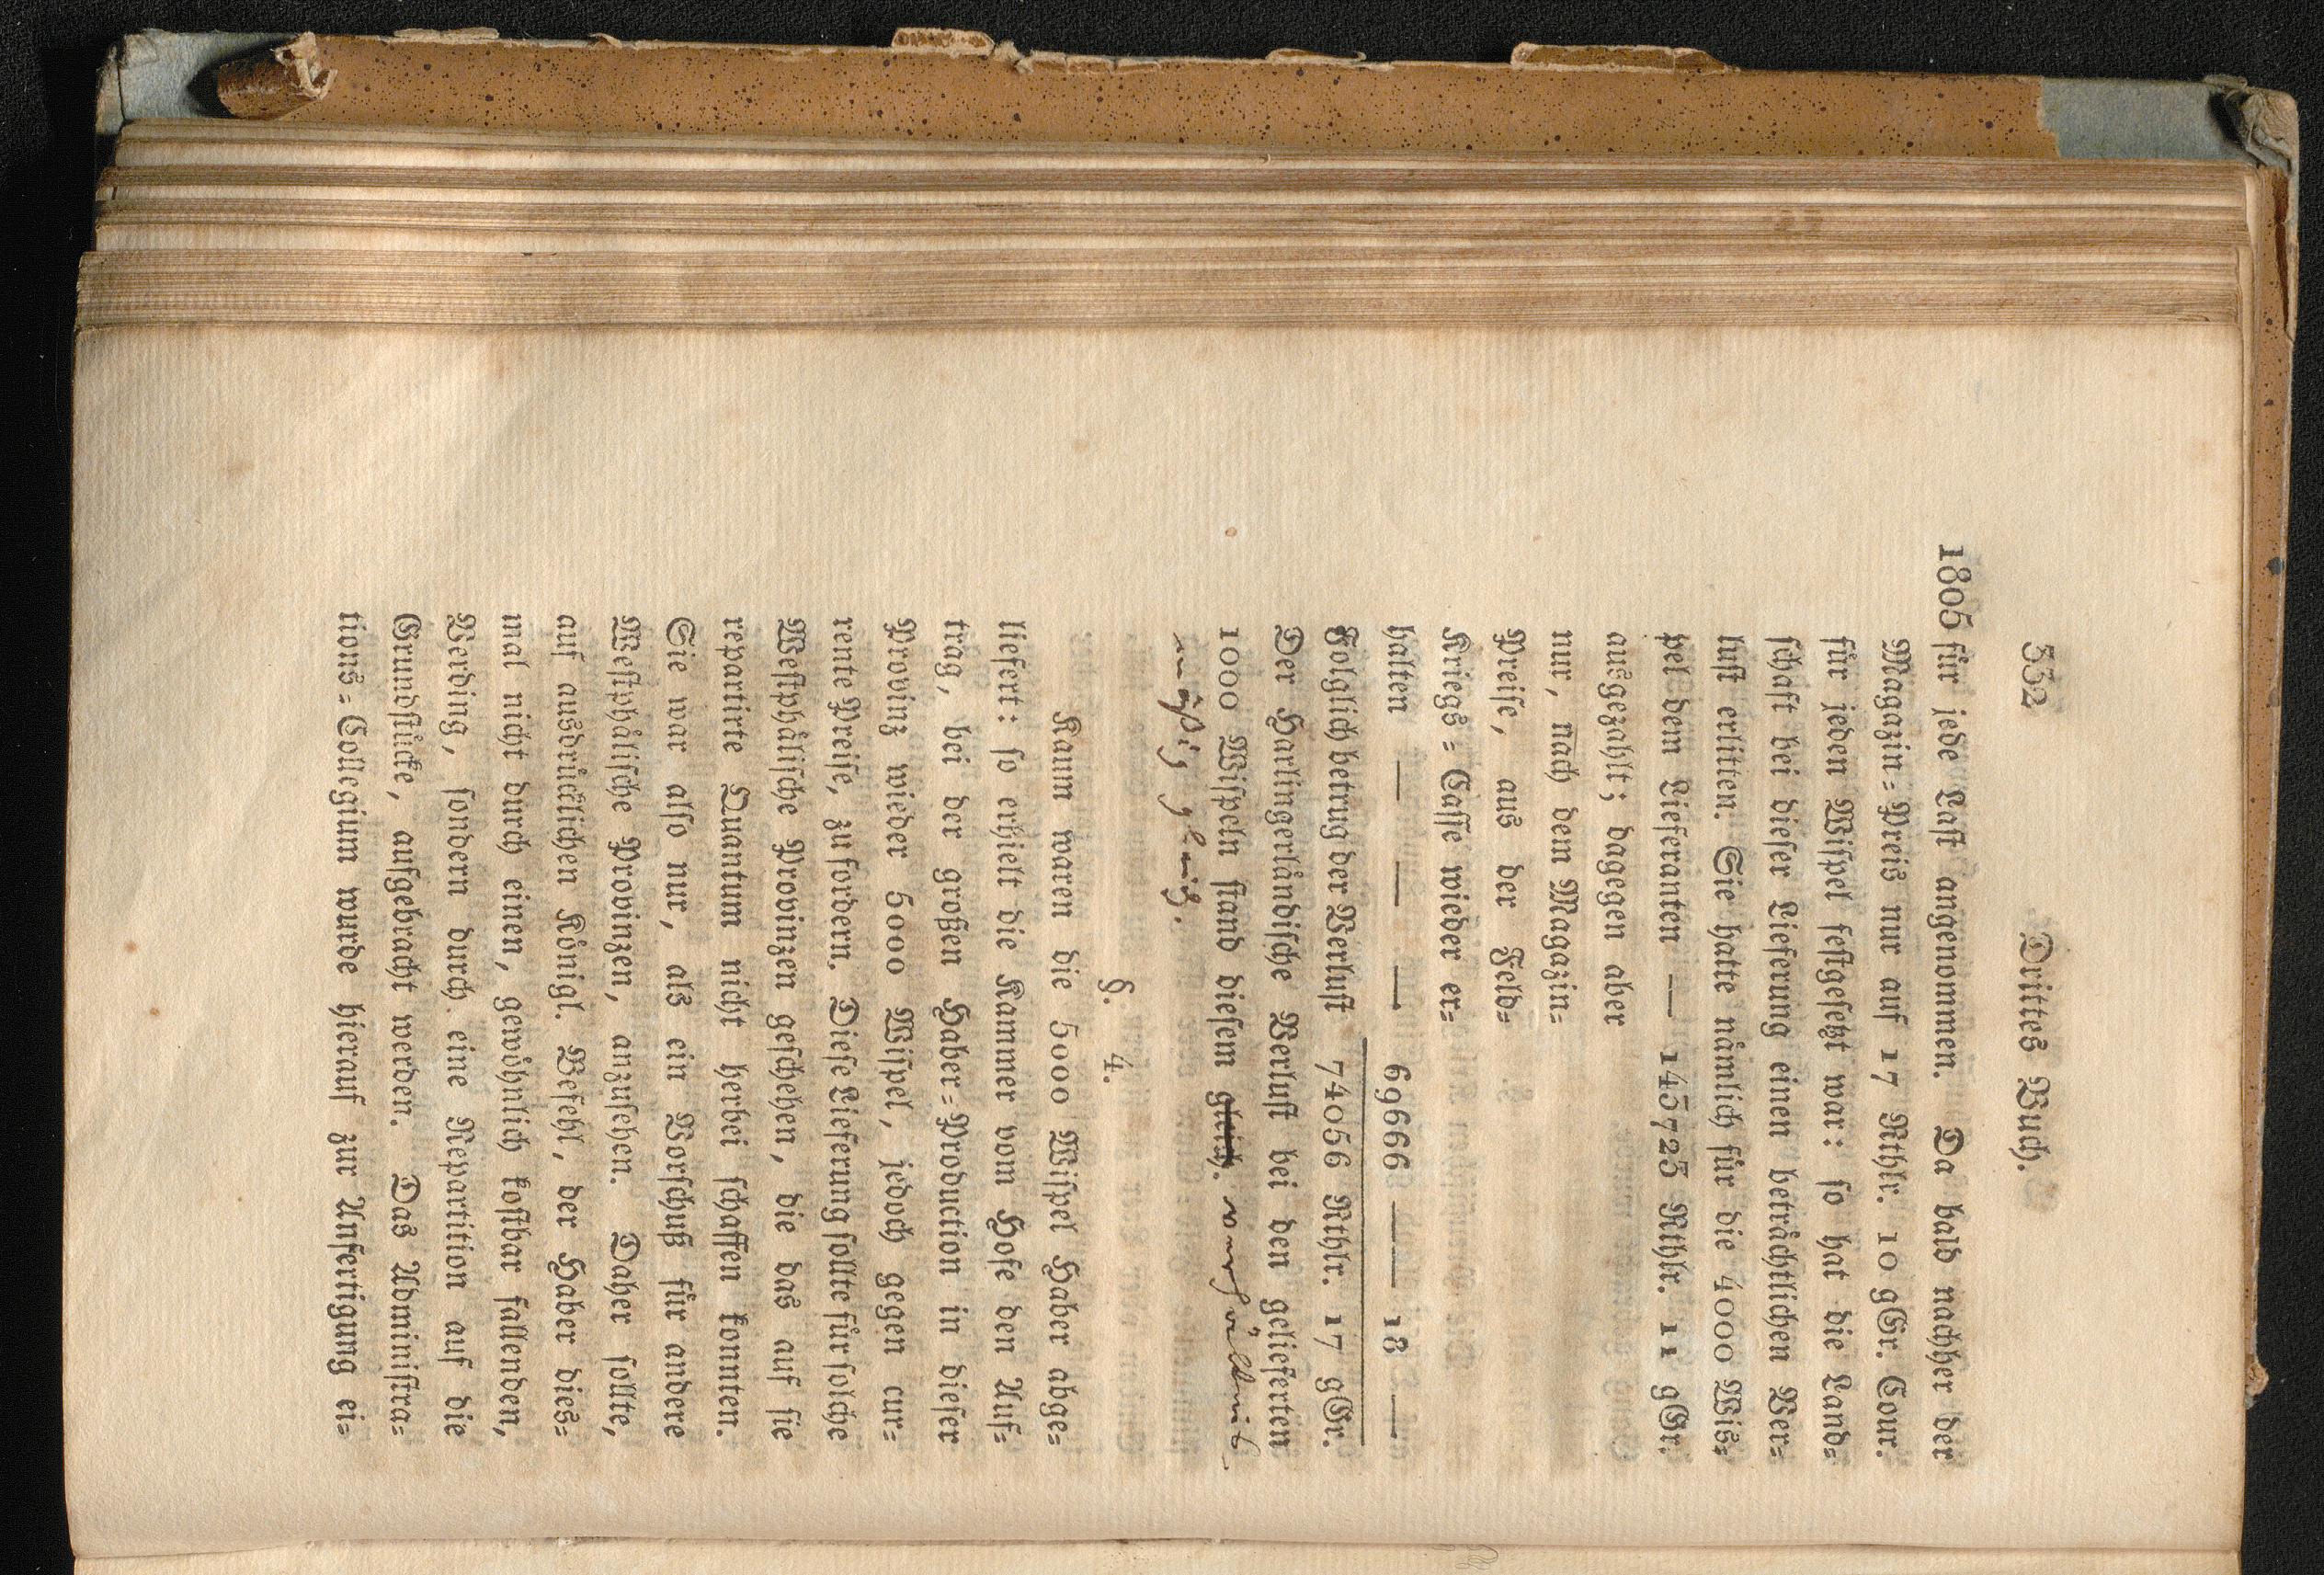 332 Drittes Buch.
1805 für jede Last angenommen. Da bald nachher der
Magazin=Preis nur auf 17 Rthlr. 10 gGr. Cour.
für jeden Wispel festgesetzt war: so hat die Land=
schaft bei dieser Lieferung einen beträchtlichen Ver=
lust erlitten. Sie hatte nämlich für die 4000 Wis=
pel dem Lieferanten — 145723 Rthlr. 11 gGr.
ausgezahlt; dagegen aber
nur, nach dem Magazin=
Preise, aus der Feld=
Kriegs=Casse wieder er=
halten — — — — 69666 — — 18 —
Folglich betrug der Verlust 74056 Rthlr. 17 gGr.
Der Harlingerländische Verlust bei den gelieferten
1000 Wispeln stand diesem gleich. verhältniß
mäßig gleich.
§. 4.
Kaum waren die 5000 Wispel Haber abge=
liefert: so erhielt die Kammer vom Hofe den Auf=
trag, bei der großen Haber=Production in dieser
Provinz wieder 5000 Wispel, jedoch gegen cur=
rente Preise, zu fordern. Diese Lieferung sollte für solche
Westphälische Provinzen geschehen, die das auf sie
repartirte Quantum nicht herbei schaffen konnten.
Sie war also nur, als ein Vorschuß für andere
Westphälische Provinzen, anzusehen. Daher sollte,
auf ausdrücklichen Königl. Befehl, der Haber dies=
mal nicht durch einen, gewöhnlich kostbar fallenden,
Verding, sondern durch eine Repartition auf die
Grundstücke, aufgebracht werden. Das Administra=
tions=Collegium wurde hierauf zur Anfertigung ei=